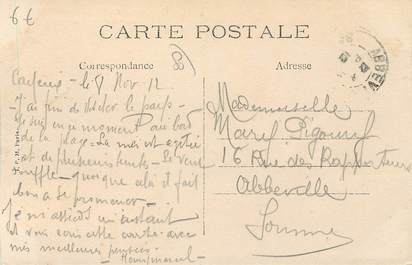 6€
CARTE POSTALE
Correspondance
Adresse
88
le 8 Nov 12
J'ai fini de visiter le pays
Je suis en ce moment au bord
de la plage - La mer est agitée
et de plusieurs Le vent
souffle - quoique cela il fait
bon à se promener -
Je m'assieds un instant
et vous cette carte avec
mes meilleures pensées -
Henri
Mademoiselle
16 Rue des
Abbeville
Somme